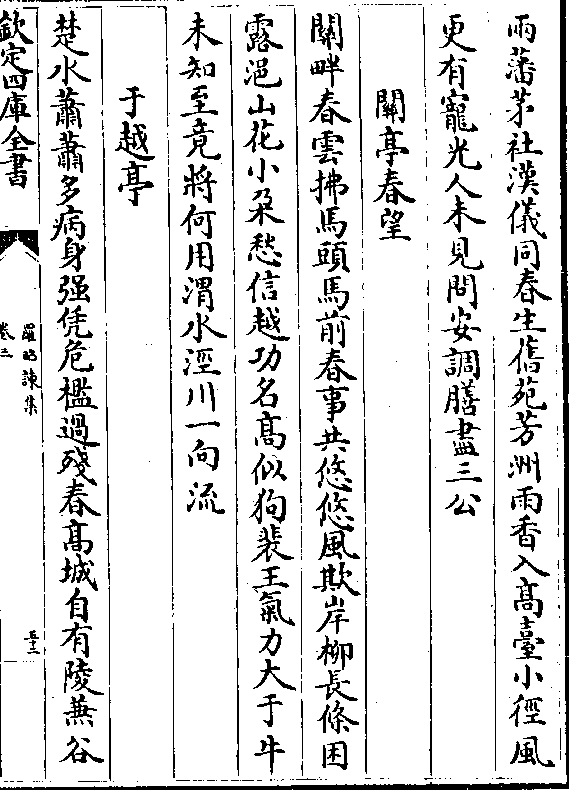 雨藩茅社漢儀同春生舊苑芳洲雨香入髙臺小徑風
更有寵光人未見問安調膳盡三公
關亭春望
關畔春雲拂馬頭馬前春事共悠悠風欺岸柳長條困
露浥山花小朶愁信越功名髙似狗裴王氣力大于牛
未知至竟將何用渭水涇川一向流
于越亭
楚水蕭蕭多病身强凭危檻過殘春髙城自有陵蕪谷
欽定四庫全書
羅昭諫集
卷三